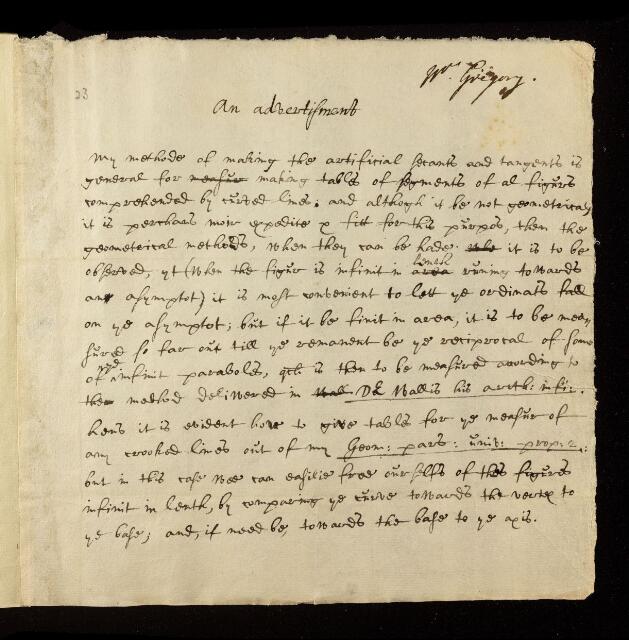 23
Mr Gregory.
An advertisment
My methode of making the artificial secants and tangents is
general for measur making tables of segments of al figurs
comprehended by curved lines; and although it be not geometrical,
it is perchaps moir expedite & fitt for this purpos, then the
geometrical methods, when they can be hade. it is to be
observed, yt (when the figur is infinit in area lenth runing towards
any asymptot) it is most convenient to lett ye ordinats fall
on ye asymptot; but if it be finit in area, it is to be mea-
sured so far out till ye remanent be ye reciprocal of some
of ye infinit parabols, qch is then to be measured acording to
the method delivered in Wall DR Wallis his arith: infi:.
hens it is evident how to give tables for ye measur of
any crooked lines out of my Geom: pars: univ: prop: 2.:
but in this case wee can easilie free our selfs of thes figurs
infinit in lenth, by comparing ye curve towards the vertex to
ye base; and, if need be, towards the base to ye axis.